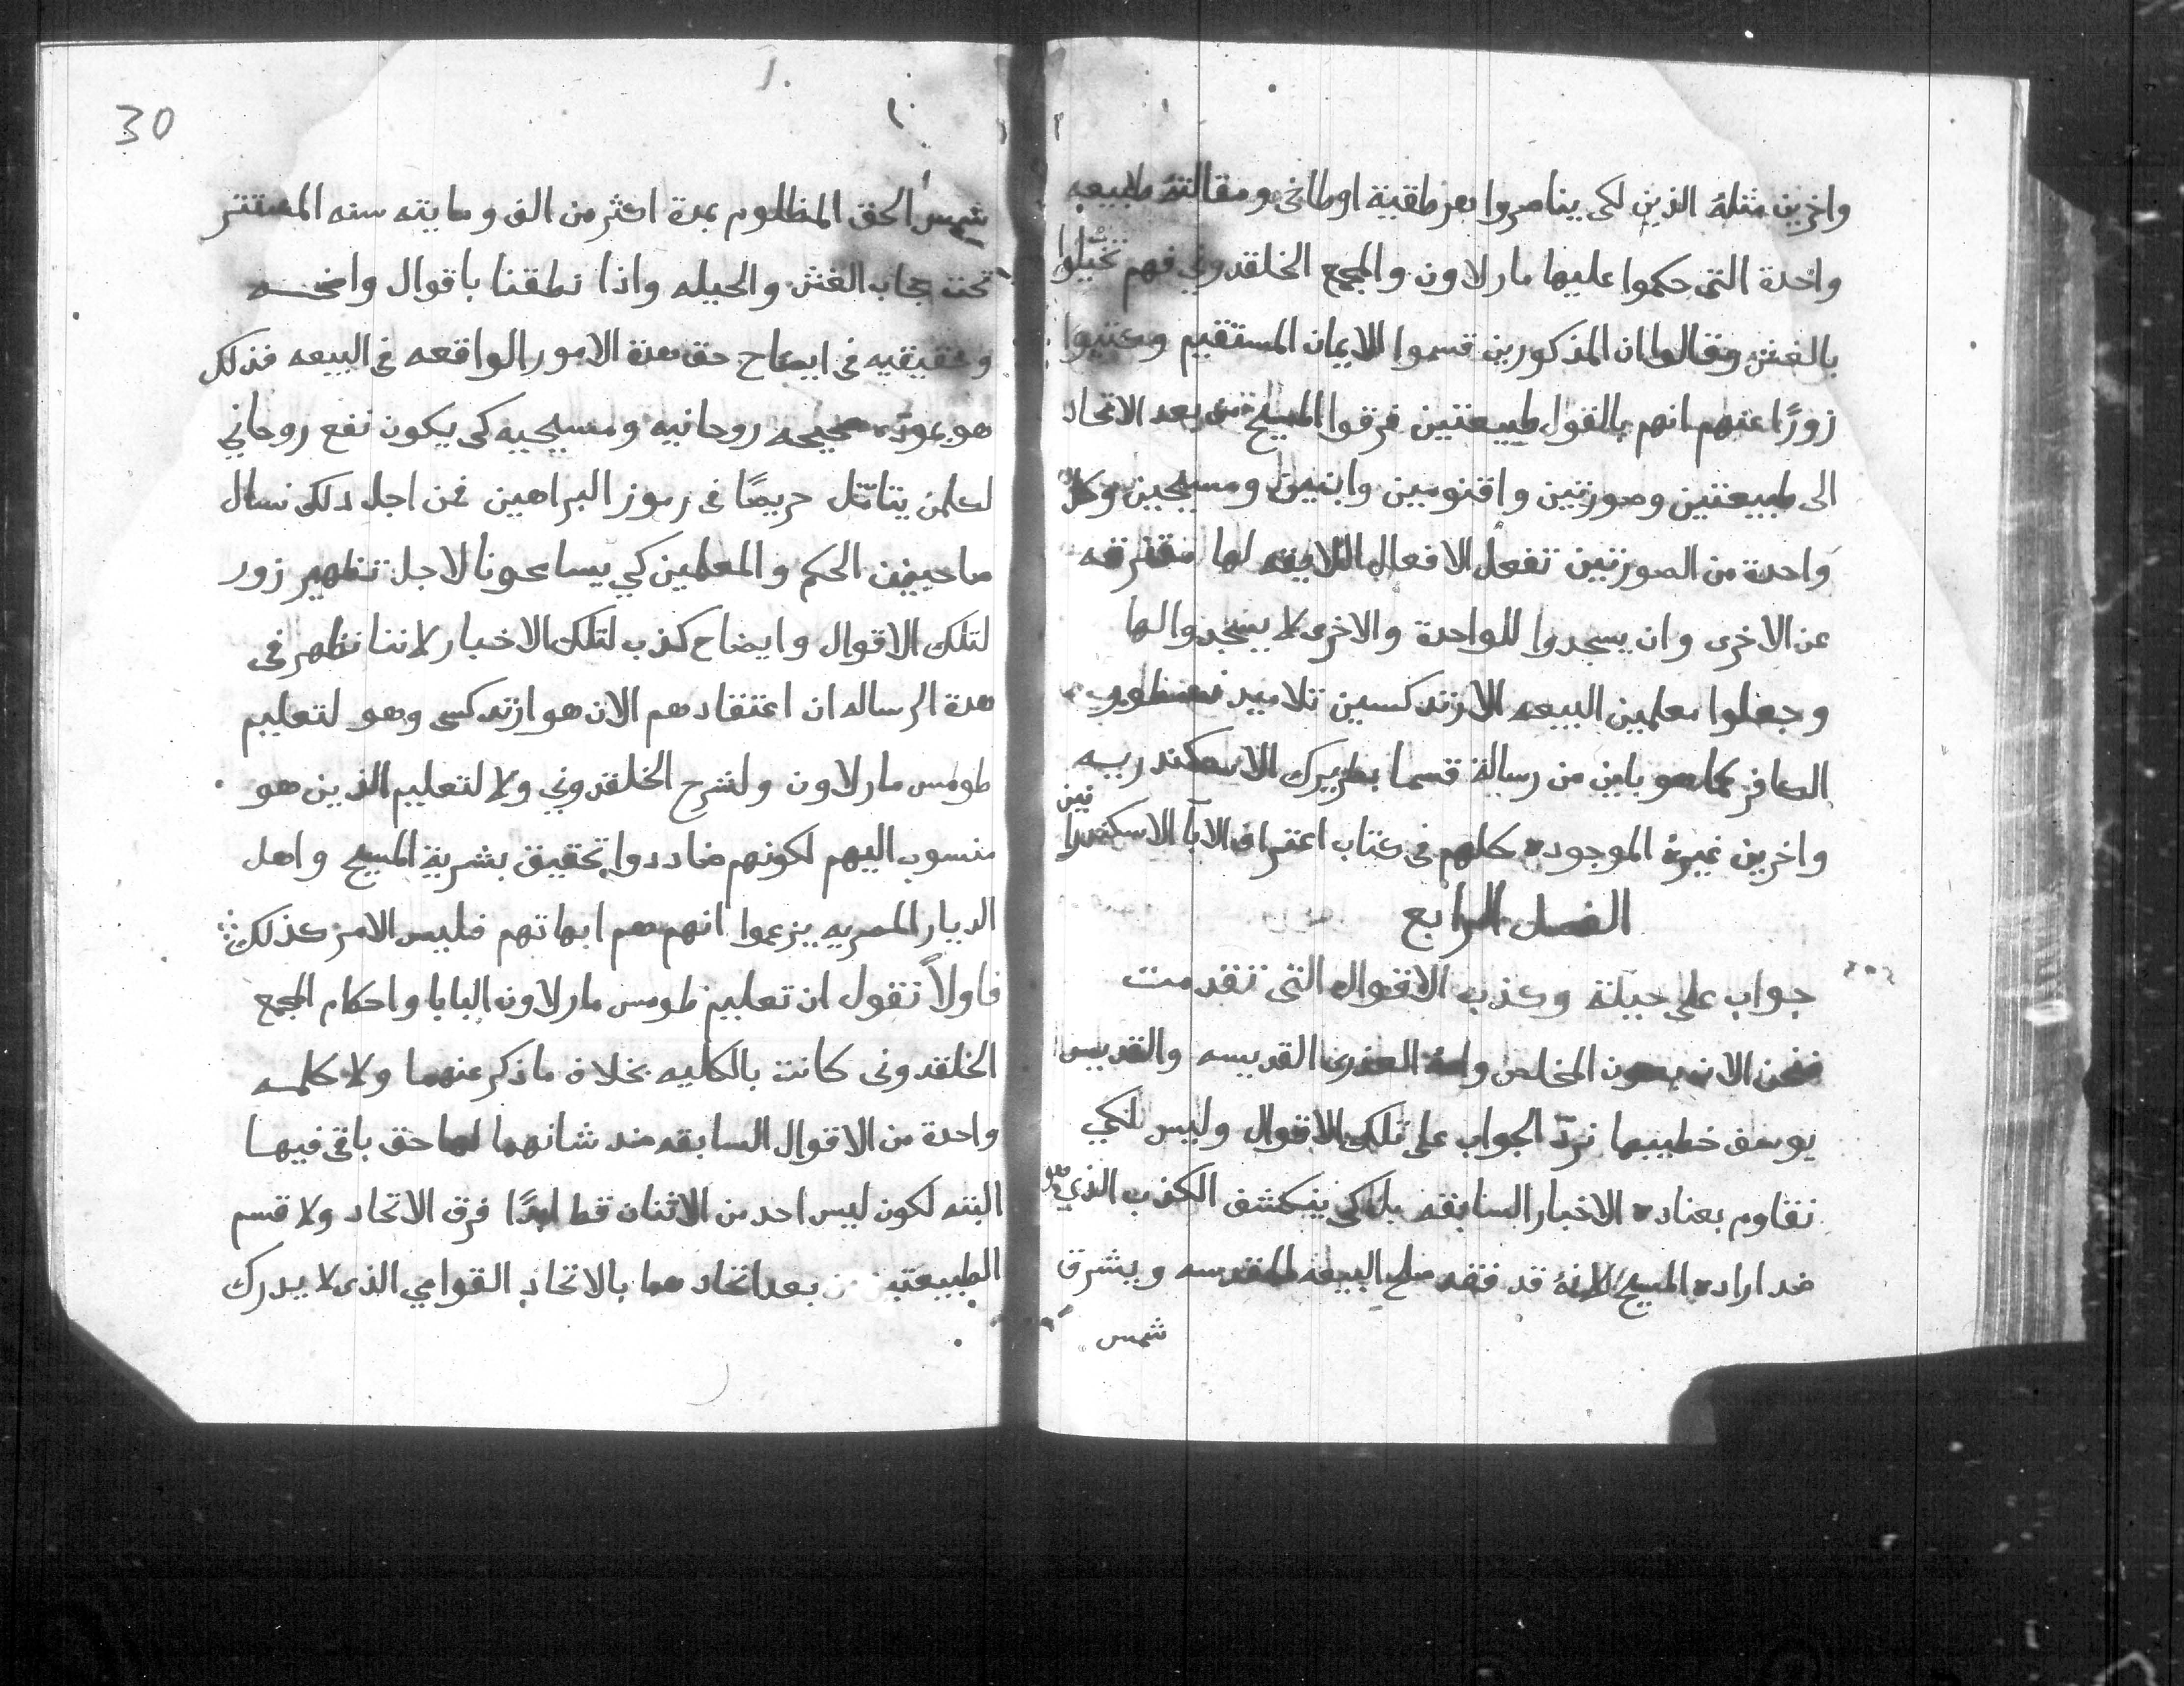 واخرين مثله الذين لكى يناصروا بهرطقية اوطاخى ومقالته طبيعه
واحدة التى حكموا عليها مار لاون والمجمع الخلقدوني فهم تخيلوا
بالغش وقالوا ان المذكورين قسموا الايمان المستقيم وكتبوا
زورًا عنهم انهم بالقول طبيعتين فرقوا المسيح من بعد الاتحاد
الى طبيعتين وصورتين واقنومين وابنين ومسيحين وكل
واحدة من الصورتين تفعل الافعال اللايقه لها مفترقه
عن الاخرى وان يسجدوا للواحدة والاخرى لا يسجدوا لها
وجعلوا معلمين البيعه الارتدكسين تلاميد نسطور
الكافر كما هو باين من رسالة قسما بطريرك الاسكندريه
واخرين غيره الموجوده كلهم فى كتاب اعتراف الابآ الاسكندرا
نيين
الفصل الرابع
جواب على حيلة وكذب الاقوال التى تقدمت
فنحن الان بعون المخلص وامه العذرى القديسه والقديس
يوسف خطيبها نردّ الجواب على تلك الاقوال وليس لكي
نقاوم بعناده الاخبار السابقه بل كى ينكشف الكذب الذي هو
ضد اراده المسيح لانه قد فقد صلح البيعه المقدسه ويشرق
شمس
30
شمس الحق المظلوم بمدة اكثر من الف ومايته سنه المستتر
تحت حجاب الغش والحيله واذا نطقنا باقوال واضحه
وحقيقيه فى ايضاح حق هدة الامور الواقعه فى البيعه فذلك
هو بمودّه صحيحه روحانيه ومسيحيه كى يكون نفع روحاني
لكلمن يتامّل حريصًا فى رموز البراهين فمن اجل دلك نسال
صاحبين الحكم والمعلمين كي يسامحونا لاجل تظهير زور
لتلك الاقوال وايضاح كذب لتلك الاخبار لاننا نظهر فى
هدة الرساله ان اعتقادهم الان هو ارتدكسى وهو لتعليم
طومس مار لاون ولشرح الخلقدوني ولا لتعليم الذين هو
منسوب اليهم لكونهم ضاددوا تحقيق بشرية المسيح واهل
الديار المصريه يزعموا انهم هم ابهاتهم فليس الامر كذلك
فاولاً نقول ان تعليم طومس مار لاون البابا واحكام المجمع
الخلقدونى كانت بالكليه بخلاف ما ذكر عنهما ولا كلمه
واحدة من الاقوال السابقه ضد شانهما لها حق باقى فيها
البته لكون ليس احد من الاثنان قط ابدًا فرق الاتحاد ولا قسم
الطبيعتين من بعد اتحادهما بالاتحاد القوامي الذى لا يدرك